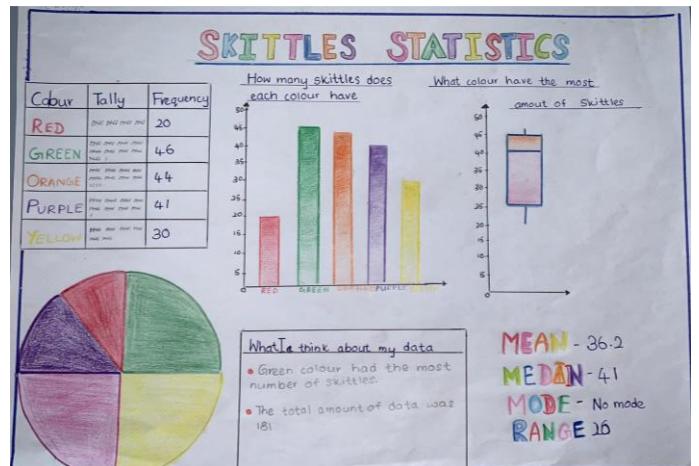 SKITTLES STATISTICS
Colour Tally Frequency
RED 20
GREEN 46
ORANGE 44
PURPLE 41
YELLOW 30
How many skittles does
each colour have
50
45
40
35
30
25
20
15
10
5
0
RED GREEN ORANGE PURPLE YELLOW
What colour have the most
amout of Skittles
50
45
40
35
30
25
20
15
10
5
0
What I think about my data
• Green colour had the most
number of skittles.
• The total amount of data was
181
MEAN - 36.2
MEDIAN - 41
MODE - No mode
RANGE 26